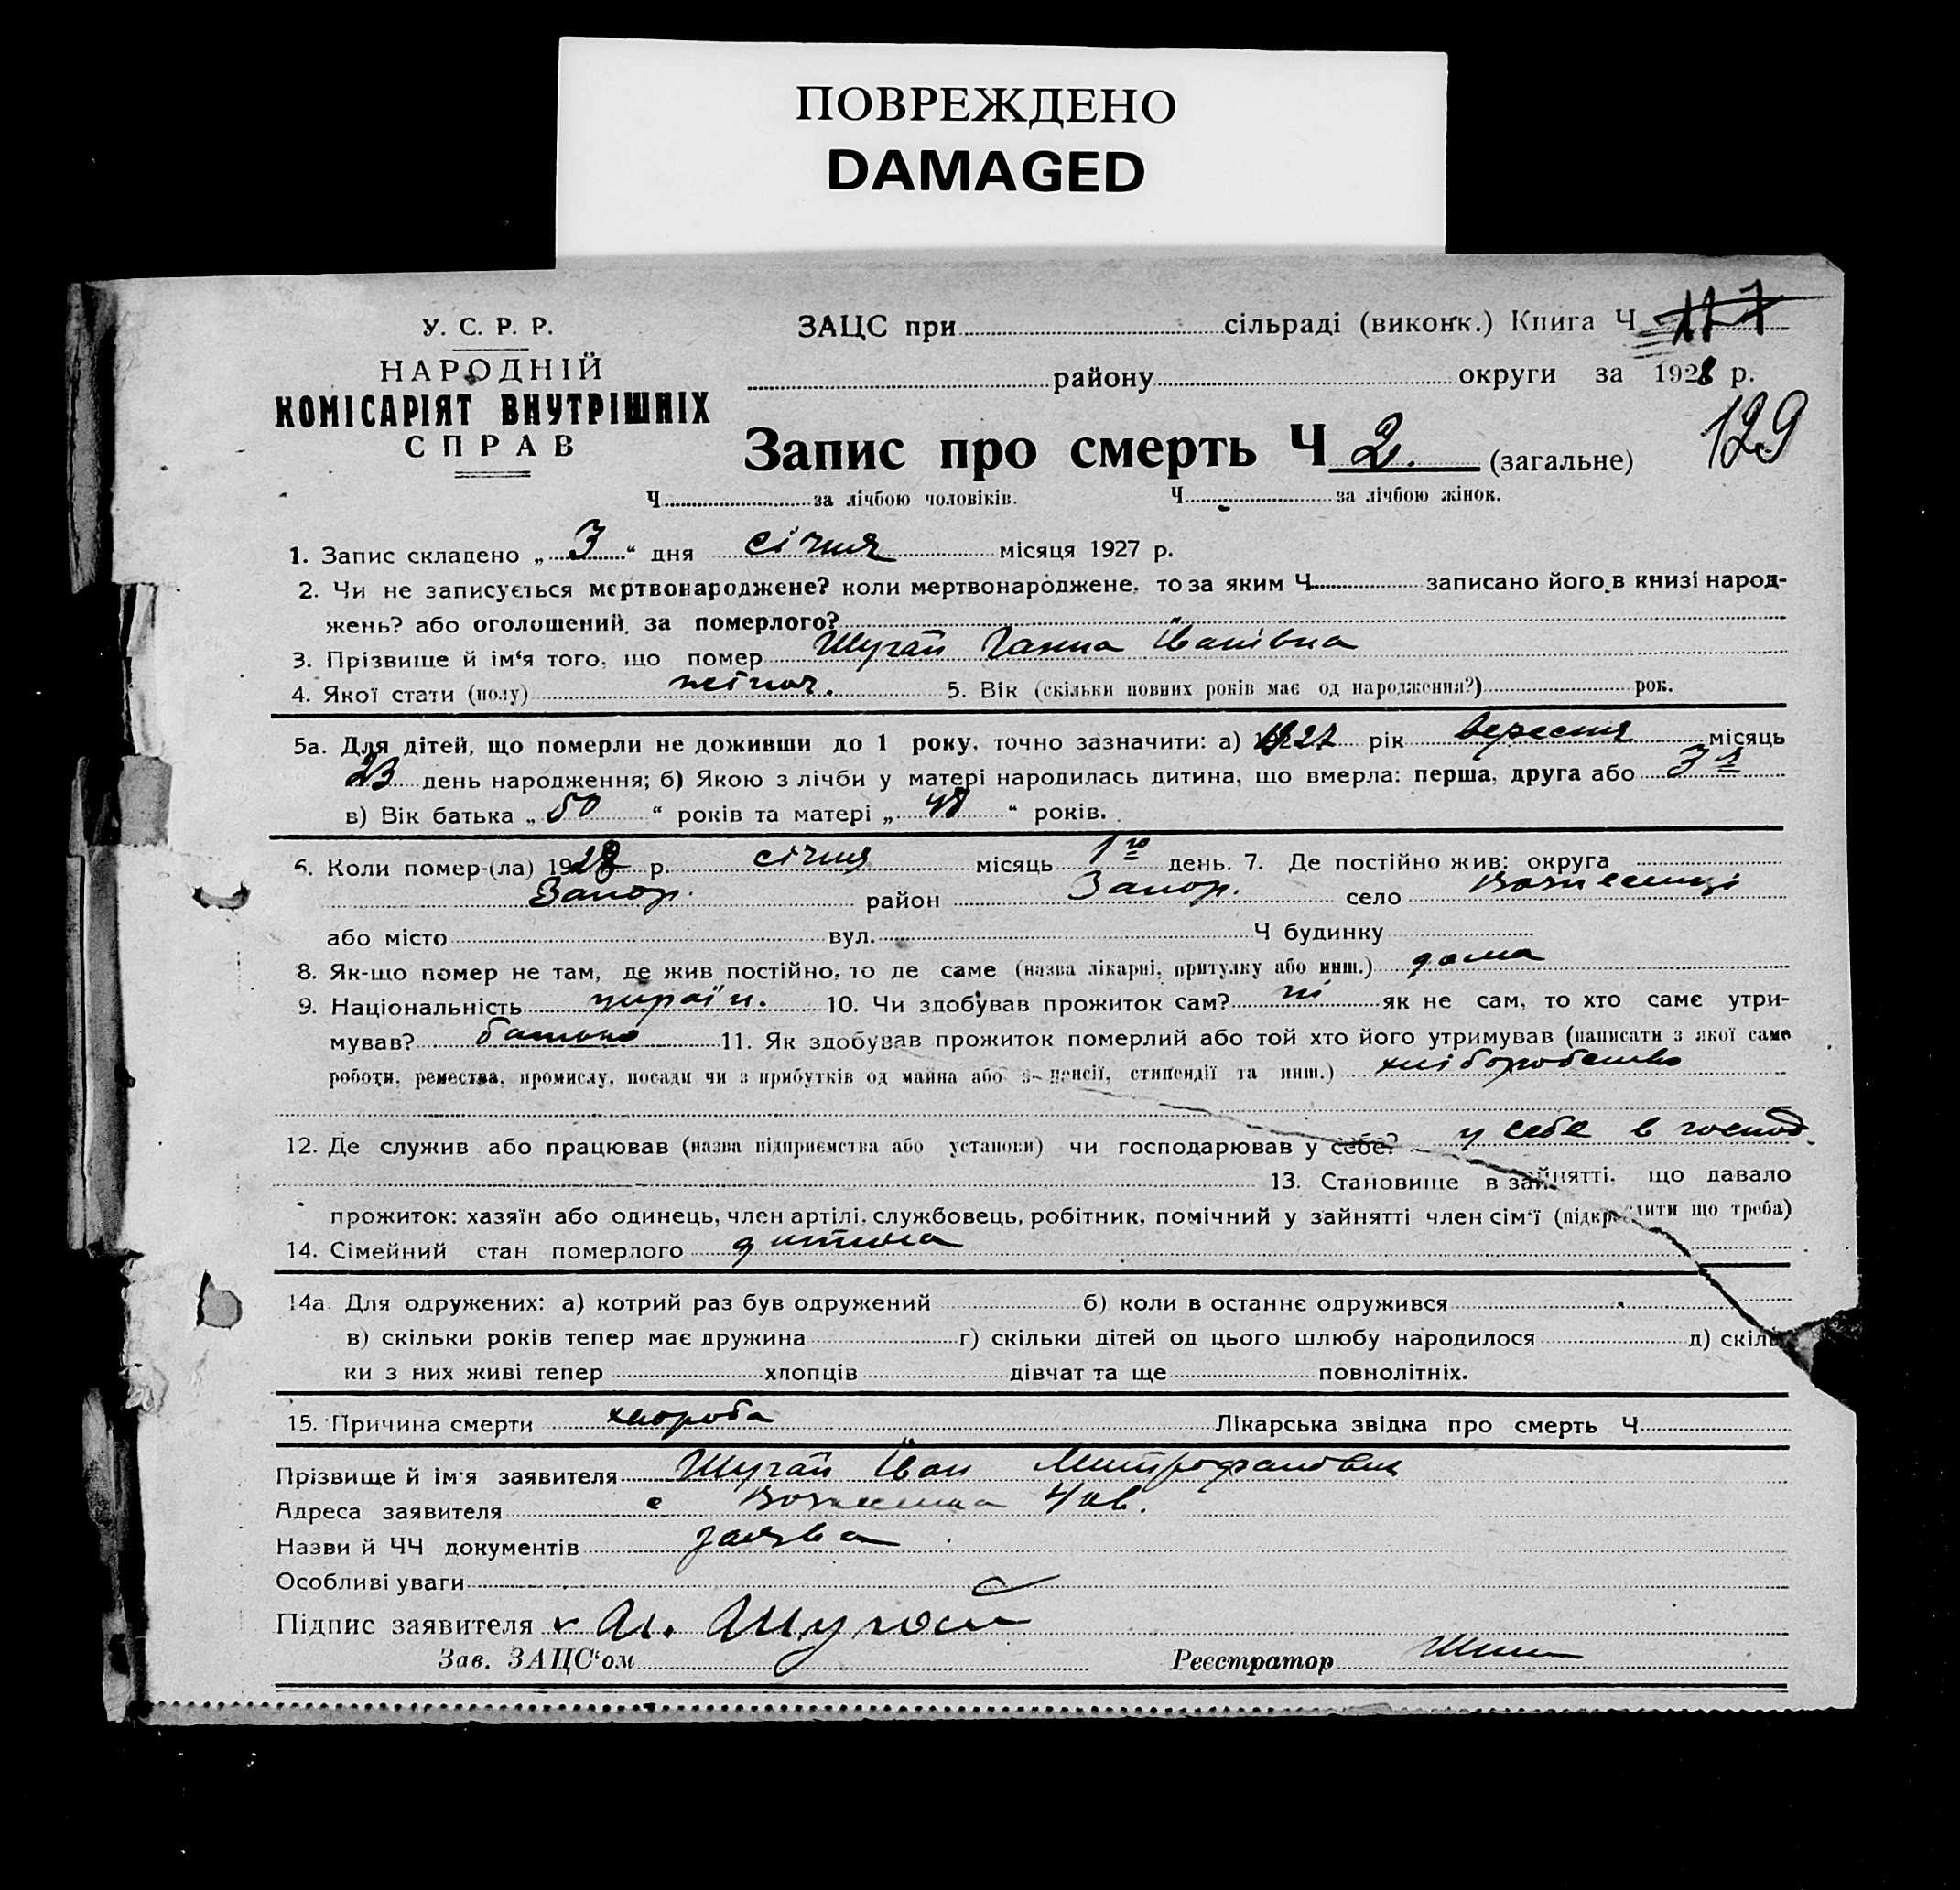 ПОВРЕЖДЕНО
DAMAGED
У. С. Р. Р.
НАРОДНІЙ
КОМІСАРІЯТ ВНУТРІШНІХ
СПРАВ
ЗАЦС при сільраді (виконк.) Книга Ч 117
району округи за 1928 р.
129
Запис про смерть Ч 2. (загальне)
Ч за лічбою чоловіків. Ч за лічбою жінок.
1. Запис складено „ 3 “ дня січня місяця 1927 р.
2. Чи не записується мертвонароджене? коли мертвонароджене, то за яким Ч записано його в книзі народ-
жень? або оголошений за померлого?
3. Прізвище й ім'я того, що помер Шугай Ганна Іванівна
4. Якої стати (полу) жіноч. 5. Вік (скільки повних років має од народження?) рок.
5а. Для дітей, що померли не доживши до 1 року, точно зазначити: а) 1927 рік вересня місяць
23 день народження; б) Якою з лічби у матері народилась дитина, що вмерла: перша, друга або 3я
в) Вік батька „ 50 “ років та матері „ 48 “ років.
6. Коли помер-(ла) 1928 р. січня місяць 1го день. 7. Де постійно жив: округа
Запор. район Запор. село Вознесенці
або місто вул. Ч будинку
8. Як-що помер не там, де жив постійно, то де саме (назва лікарні, притулку або инш.) дома
9. Національність україн. 10. Чи здобував прожиток сам? ні як не сам, то хто саме утри-
мував? батько 11. Як здобував прожиток померлий або той хто його утримував (написати з якої саме
роботи, ремества, промислу, посади чи з прибутків од майна або з пенсії, стипендії та инш.) хліборобство
12. Де служив або працював (назва підприємства або установи) чи господарював у себе? у себе в господ.
13. Становище в зайнятті, що давало
прожиток: хазяїн або одинець, член артілі, службовець, робітник, помічний у зайнятті член сім'ї (підкреслити що треба)
14. Сімейний стан померлого дитина
14а Для одружених: а) котрий раз був одружений б) коли в останнє одружився
в) скільки років тепер має дружина г) скільки дітей од цього шлюбу народилося д) скіль-
ки з них живі тепер хлопців дівчат та ще повнолітніх.
15. Причина смерти хвороба Лікарська звідка про смерть Ч
Прізвище й ім'я заявителя Шугай Іван Митрофанович
Адреса заявителя с Вознесенка 4 кв.
Назви й ЧЧ документів заява
Особливі уваги
Підпис заявителя И. Шугай
Зав. ЗАЦС'ом Реєстратор